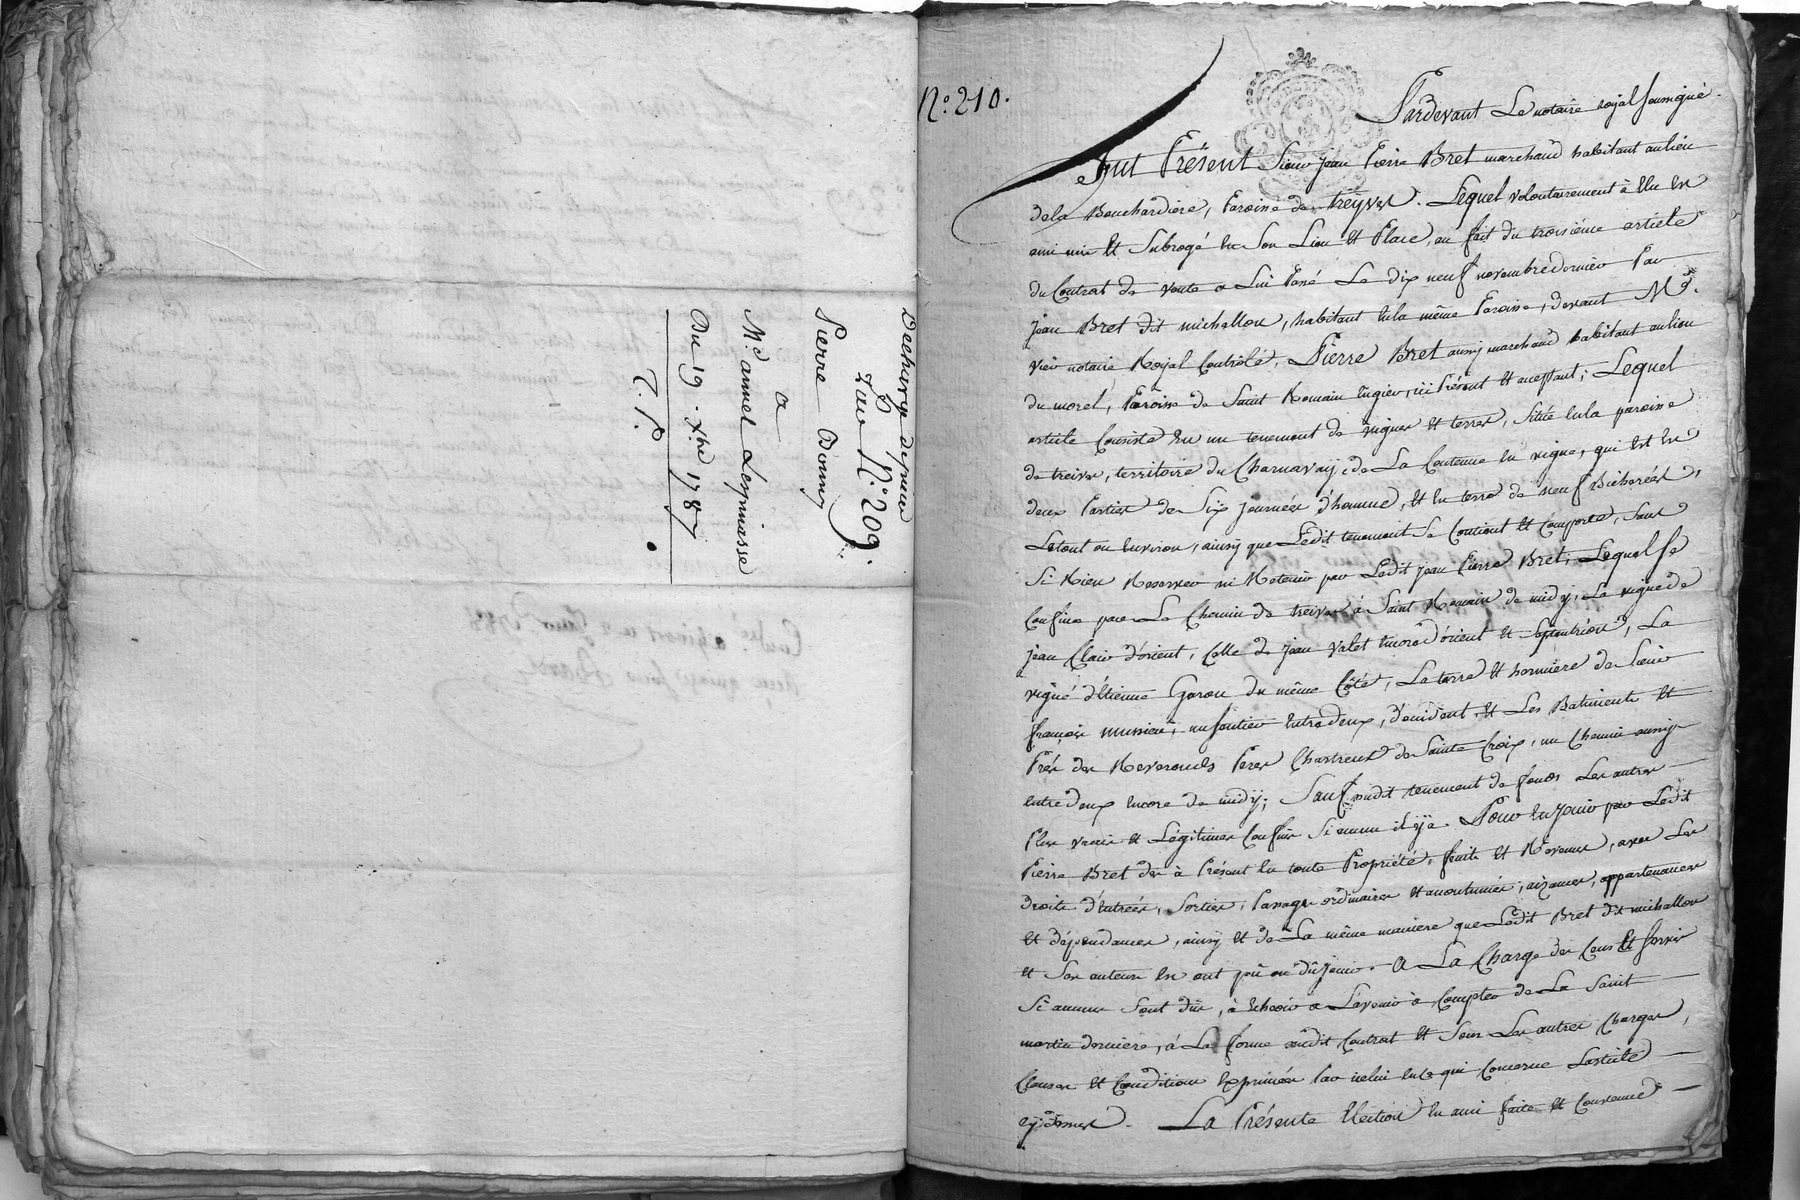 Pierre Bonny
a
Md. annet Lespinasse
Du 19. Xbre 1787
N.° 209.
N.° 210.
Pardevant Le notaire royal soussigné.
Fut Présent Sieur Jean Pierre Bret marchand habitant au lieu
de la Bouchardiere, Paroisse de treyves. Lequel volontairement à Elu en
ami et Subrogé en Son Lieu et Place, au fait du troisiéme article
du Contrat de vente a Lui Passé Le dix neuf novembre dernier Par
Jean Bret dit michallon, habitant en la même Paroisse, devant Me.
notaire Royal Contrôlé, Pierre Bret aussy marchand habitant au lieu
du morel, Paroisse de Saint Romain en gier, ici Présent et acceptant; Lequel
article Consiste en un tenement de vignes et terres, Situé en la paroisse
de treives, territoire du Charnavay, de La Contenue en vigne, qui est en
deux Parties de Six journées d'homme, et en terre de neuf Bicherées,
Le tout ou Environ, ainsy que Ledit tenement Se Contient et Comporte, Sans
Si Rien Reserver ni Retenir par Ledit Jean Pierre Bret; Lequel Se
Confine par Le Chemin de treives à Saint Romain de midy, La vigne de
Jean Clair d'orient, Celle de Jean Valet encore d'orient et Septentrion, La
vigne d'Etienne Garon du même Côté, La terre et hermiere de Sieur
françois, un Sentier entre deux, d'occident, et Les Batiments et
Prés des Reverends Peres Chartreux de Sainte Croix, un Chemin aussy
entre deux encore de midy; Sauf audit tenement de fonds Les autres
Plus vrais et Légitimes Confins Si aucun il y a. Pour en Jouir par Ledit
Pierre Bret dès à Présent en toute Propriété, fruits et Revenus, avec Les
droits d'Entrées, Sorties, Passages ordinaires et accoutumés, aizances, appartenances
et dépendances, ainsy et de La même maniere que Ledit Bret dit michallon
et Ses auteurs en ont pû ou dû Jouir. A La Charge des Cens et Servis
Si aucuns Sont dûs, à échoir a L'avenir à Compter de La Saint
martin derniere, à La forme dudit Contrat et Sous Les autres Charges,
Clauses et Conditions Exprimées Par icelui en ce qui Concerne L'article
cy dessus. La Présente Election en ami faite et Convenue